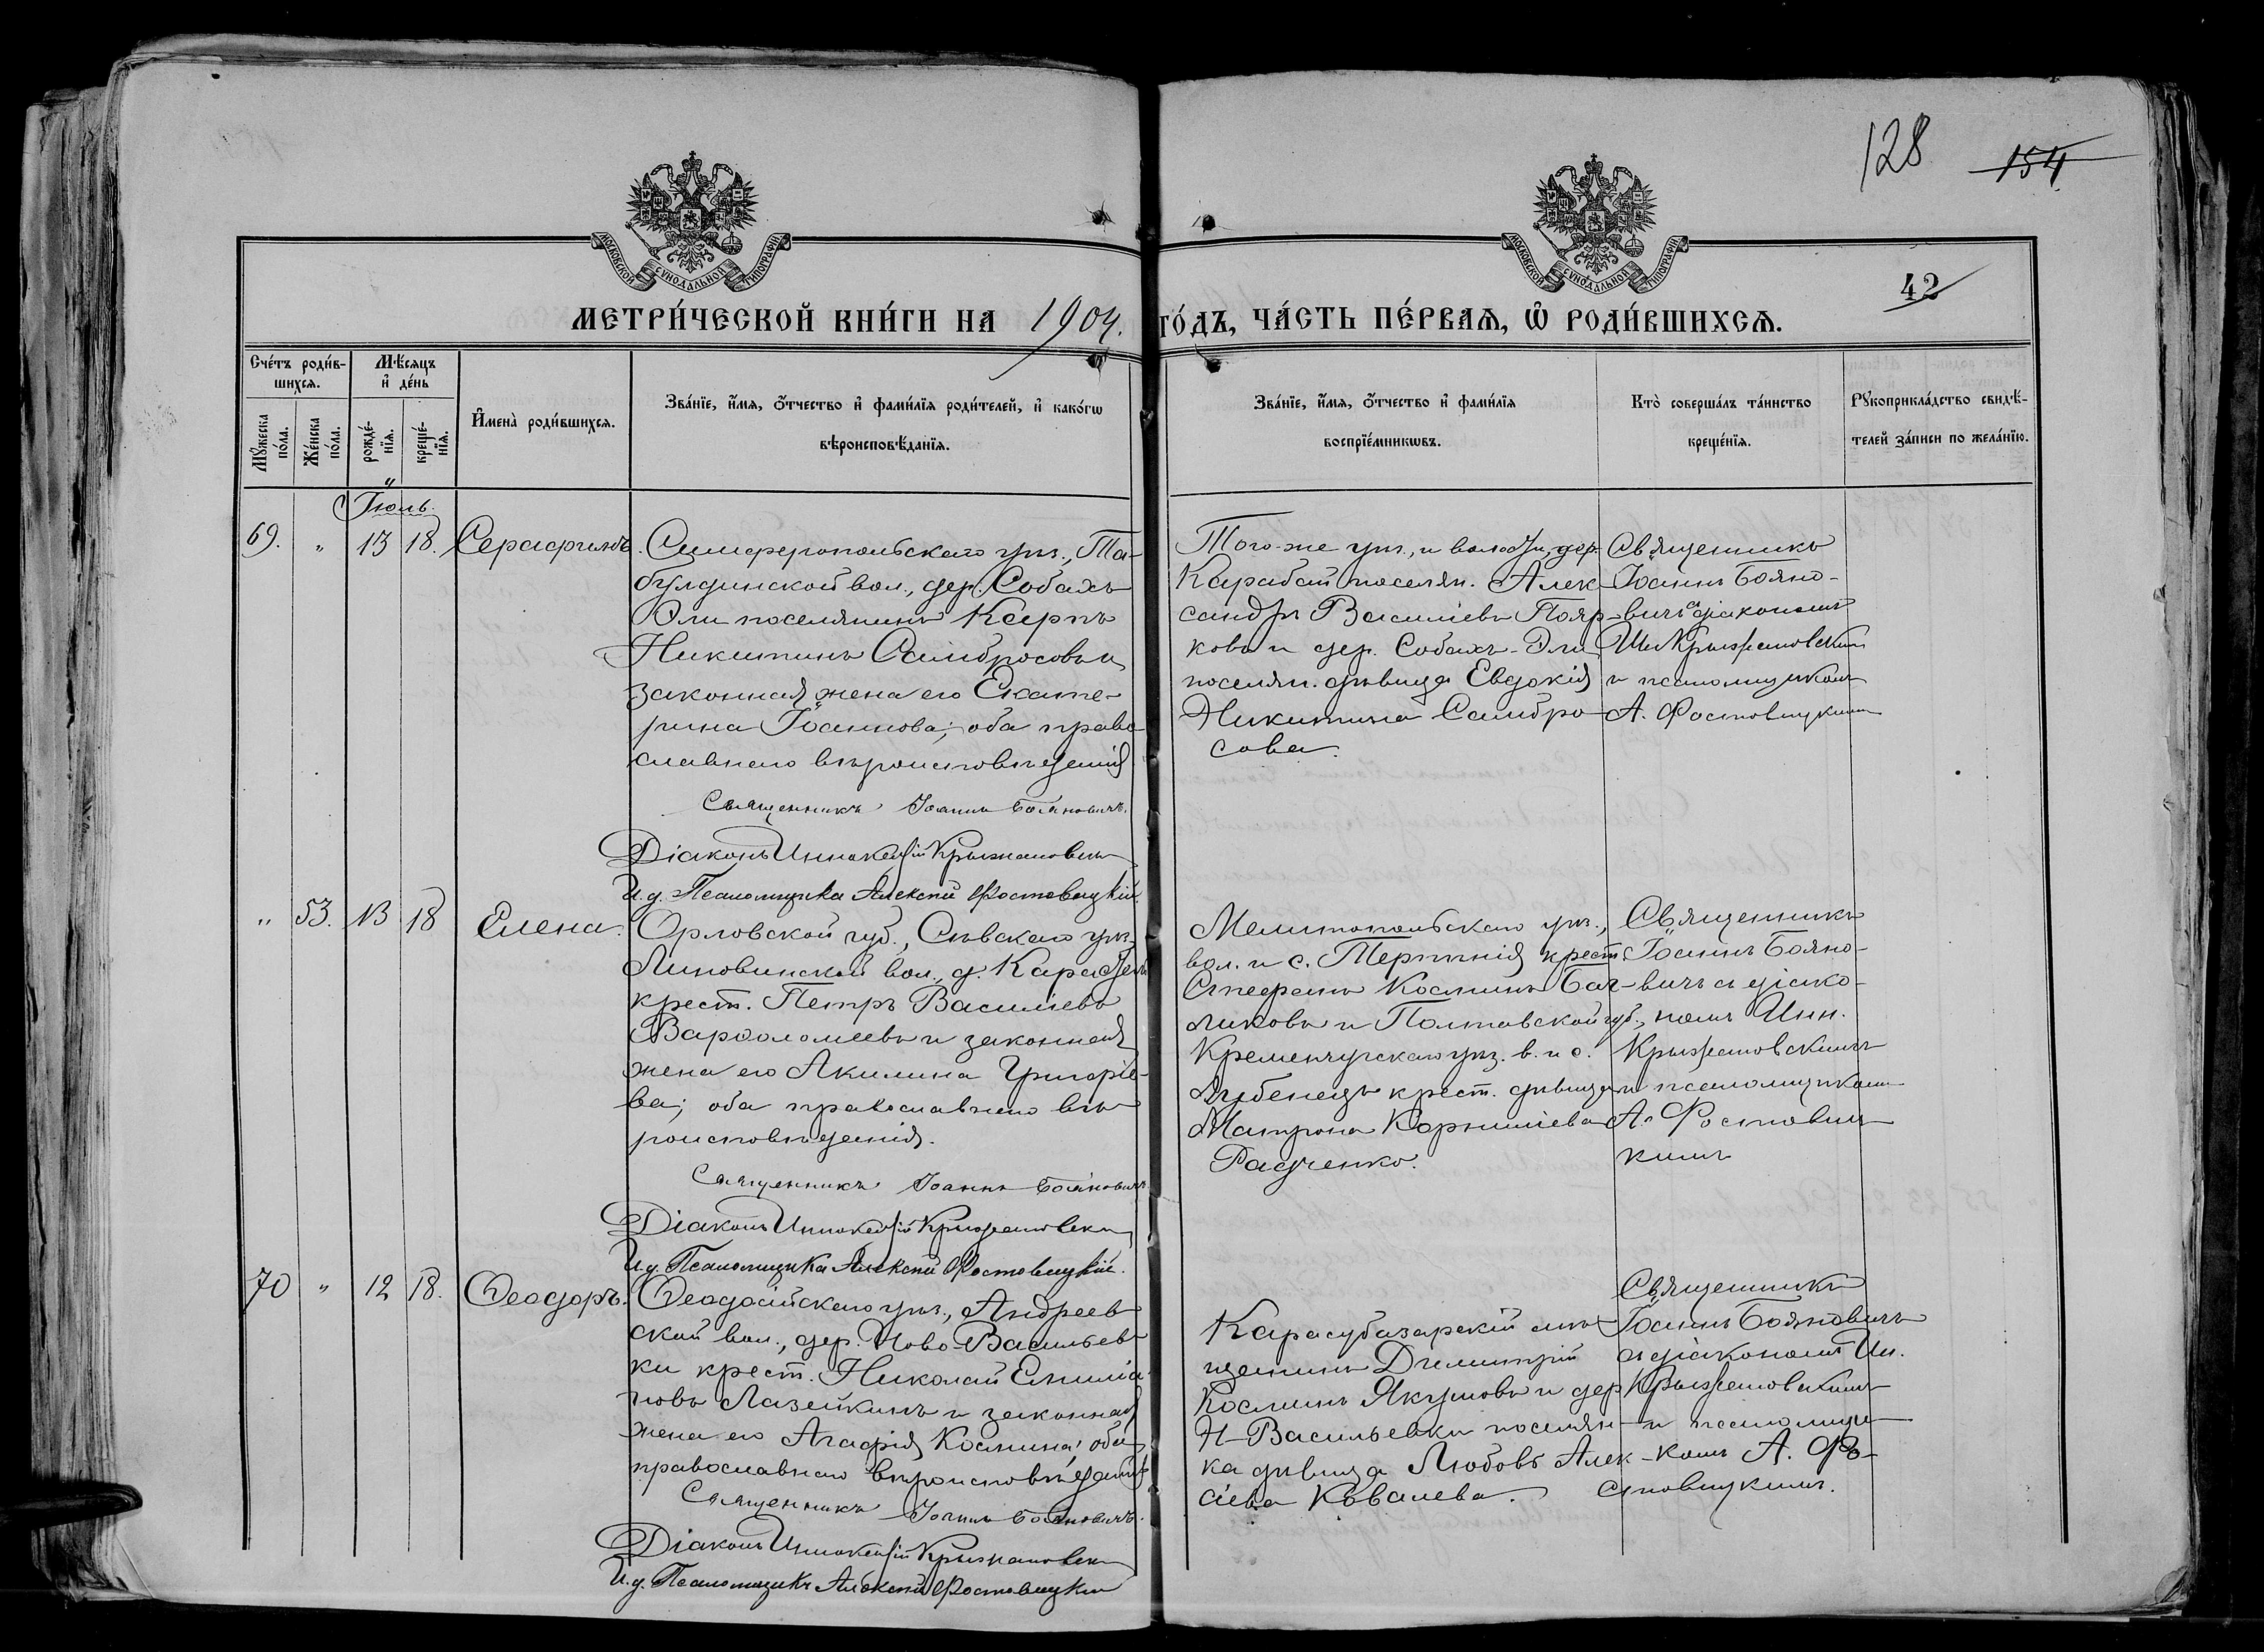 128 154
42
МОСКОВСКОЙ СѴНОДАЛЬНОЙ ТИПОГРАФІИ
МОСКОВСКОЙ СѴНОДАЛЬНОЙ ТИПОГРАФІИ
МЕТРИ́ЧЕСКОЙ КНИ́ГИ НА 1904. ГО́ДЪ, ЧА́СТЬ ПЕ́РВАѦ, Ѡ҆ РОДИ́ВШИХСѦ.
Сче́тъ роди́в-
шихсѧ.
Мѣ́сѧцъ
и҆ де́нь
Мꙋ́жеска по́ла.
Же́нска по́ла.
рожде́-нїѧ.
креще́-нїѧ.
И҆мена̀ роди́вшихсѧ.
Зва́нїе, и҆́мѧ, ѻ҆́тчество и҆ фами́лїѧ роди́телей, и҆ како́гѡ
вѣроисповѣ́данїѧ.
Зва́нїе, и҆́мѧ, ѻ҆́тчество и҆ фами́лїѧ
воспрїе́мникѡвъ.
Кто̀ соверша́лъ та́инство
креще́нїѧ.
Рꙋкоприкла́дство свидѣ́-
телей за́писи по жела́нїю.
Іюль.
69. „ 13 18. Серафимъ.
Симферопольскаго уѣз., Та-
булдинской вол., дер. Собахъ
Эли поселянинъ Карпъ
Никитинъ Самбросовъ и
законная жена его Екате-
рина Іоаннова; оба право
славнаго вѣроисповѣданія
Священникъ Іоаннъ Бояновичъ.
Діаконъ Иннокентій Крыжановскій
И.д. Псаломщика Алексій Фостовицкій.
Того-же уѣз., и волости, дер.
Карабай поселян. Алек-
сандръ Василіевъ Пояр-
ковъ и дер. Собахъ-Эли
поселян. дѣвица Евдокія
Никитина Самбро-
сова.
Священникъ
Іоаннъ Бояно-
вичъ съ діакономъ
Ин. Крыжановскимъ
и псаломщикомъ
А. Фостовицкимъ
„ 53. 13 18 Елена.
Орловской губ., Сѣвскаго уѣз.
вол., д.
крест. Петръ Василіевъ
Варѳоломеевъ и законная
жена его Акилина Григоріе-
ва; оба православнаго вѣ-
роисповѣданія.
Священникъ Іоаннъ Бояновичъ
Діаконъ Иннокентій Крыжановскій
И.д. Псаломщика Алексій Фостовицкій.
Мелитопольскаго уѣз.,
вол. и с. Терпѣнія крест.
Стефанъ Косминъ Бат-
ликовъ и Полтавской губ.,
Кременчугскаго уѣз. в. и с.
крест. дѣвица
Матрона Корниліева
Радченко.
Священникъ
Іоаннъ Бояно-
вичъ съ діако-
номъ Инн.
Крыжановскимъ
и псаломщикомъ
А. Фостовиц-
кимъ
70 „ 12 18. Ѳеодоръ.
Ѳеодосійскаго уѣз., Андреев
ской вол., дер. Ново-Васильев
ки крест. Николай Емиліа-
новъ Лазейкинъ и законная
жена его Агафія Космина; оба
православнаго вѣроисповѣданія
Священникъ Іоаннъ Бояновичъ.
Діаконъ Иннокентій Крыжановскій
И.д. Псаломщика Алексій Фостовицкій
Карасубазарскій мѣ-
щанинъ Димитрій
Косминъ Якумовъ и дер.
Н-Васильевки поселян-
ка дѣвица Любовь Алек-
сіева Ковалева.
Священникъ
Іоаннъ Бояновичъ
съ діакономъ Ин.
Крыжановскимъ
и псаломщи-
комъ А. Фо-
стовицкимъ.